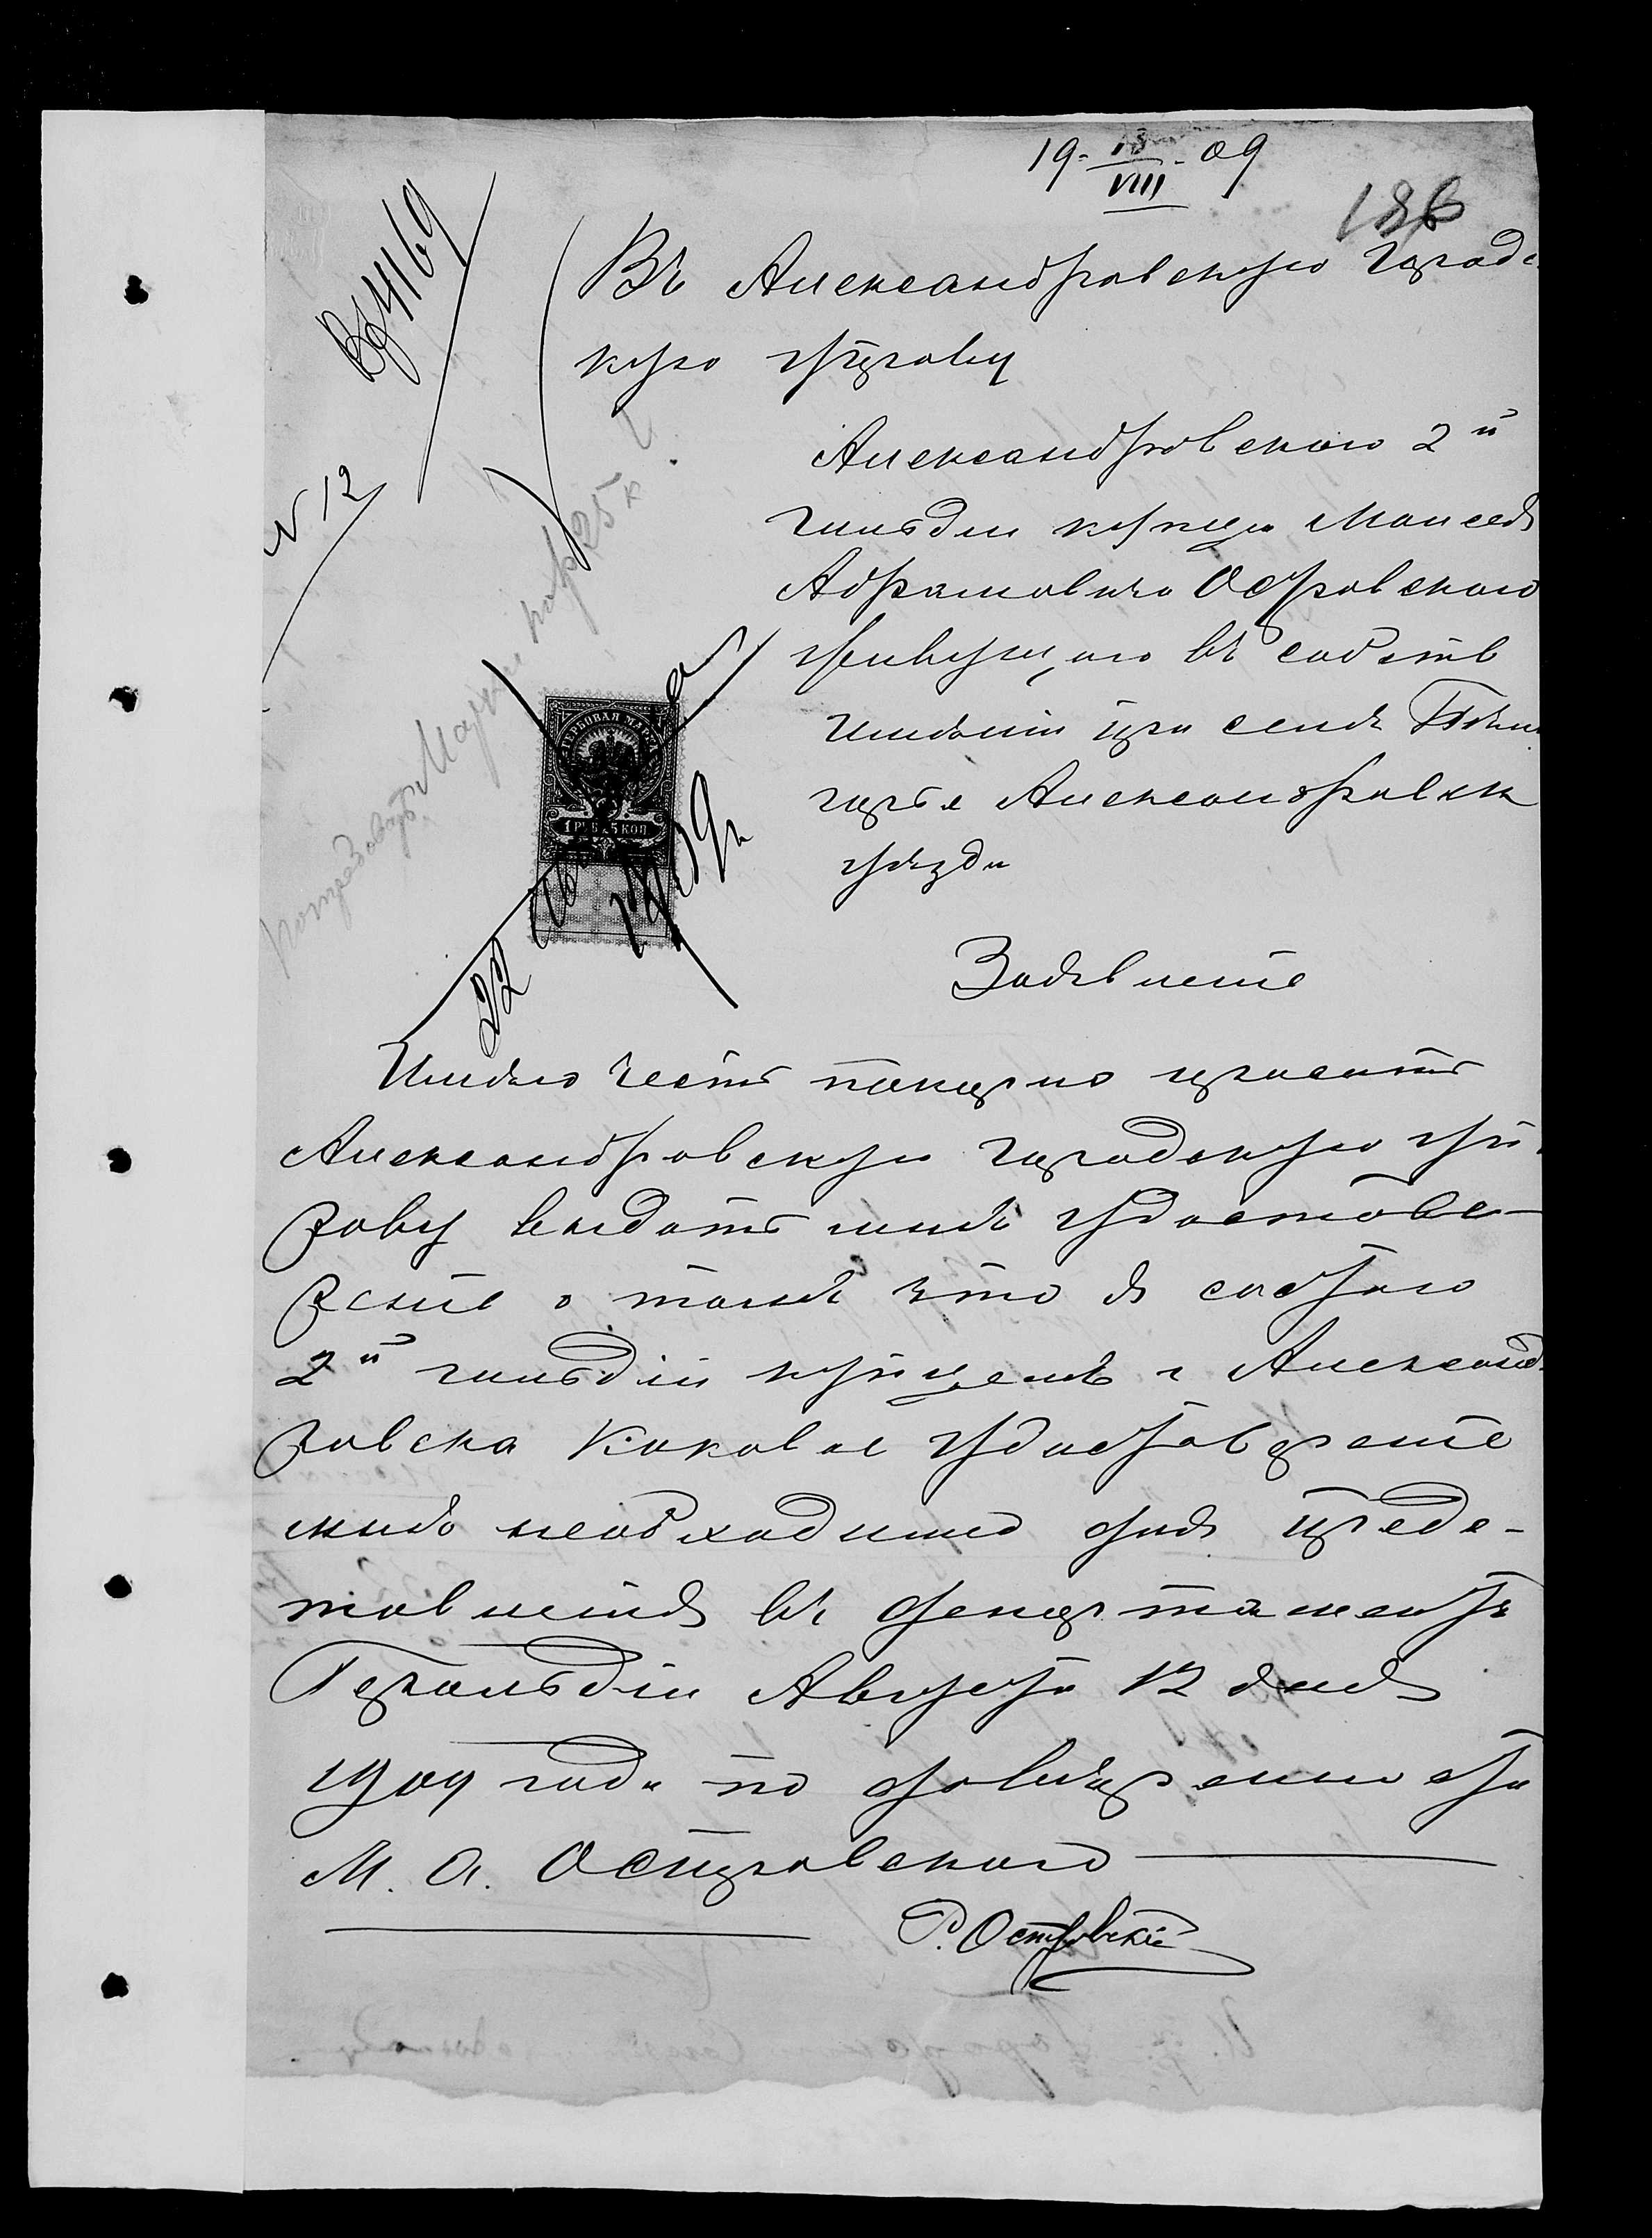 19-13/VIII-09
186
Вх 4169
N 12
Въ Александровскую Городс
кую управу
Александровского 2й
гильдии купца Моисея
Абрамовича Островского
живущаго въ собств
имѣнiи при селѣ
Александровск
уѣзда
потребовать Марки 25 к
ГЕРБОВАЯ МАРКА
1 РУБ. 25 КОП
22
1909
Заявленiе
Имѣю честь покорно просить
Александровскую городскую уп
раву выдать мнѣ удостове-
ренiе о томъ что я состою
2й гильдiи купцемъ г Александ
ровска каковое удостоверенiе
мнѣ необходимо для предс-
тавленiя въ департаментъ
Герольдiи Августа 12 дня
1909 года по доверенности
М. А. Островского
Р. Островскiй